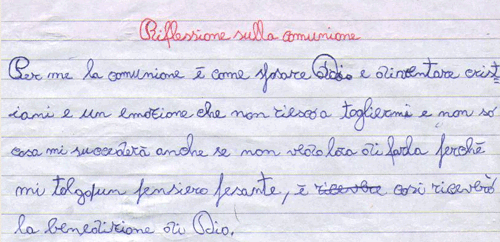 Riflessione sulla comunione
Per me la comunione è come sposare Dio e diventare crist
iani e un emozione che non riesco a togliermi e non so
cosa mi succederà anche se non vedo lora di farla perché
mi tolgo un pensiero pesante, e ricevere così riceverò
la benedizione di Dio.